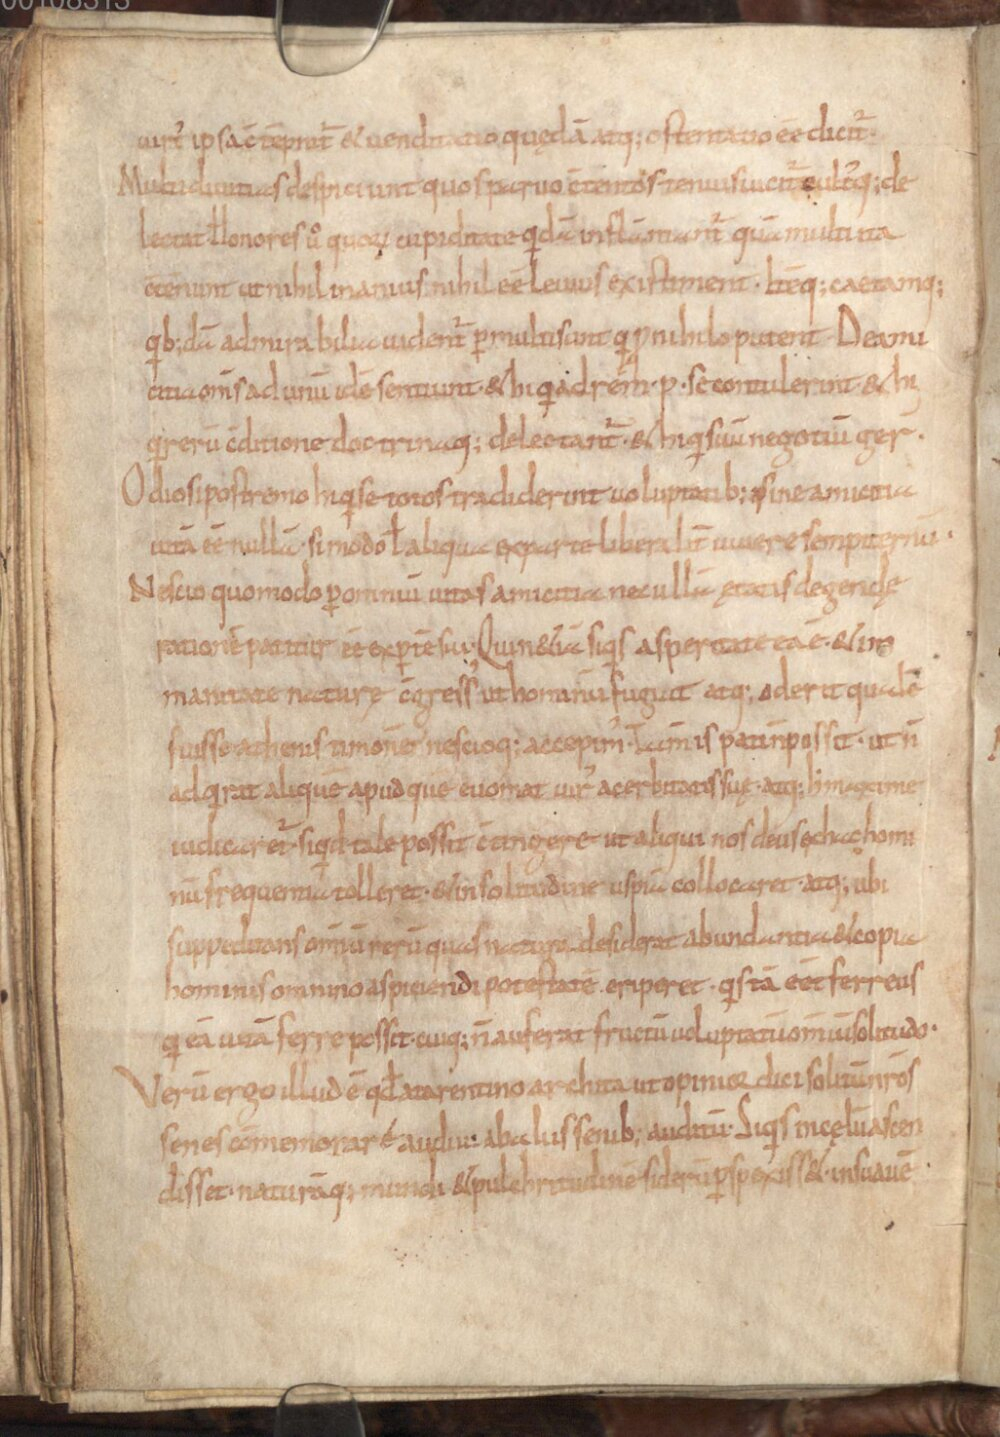 00108313
uirt᷑ ipsa c̄tēpnit᷑ & uenditatio quędā atq; ostentatio eē dicit᷑.
Multi diuitias despiciunt quos paruo c̄tentos tenuis uict᷑ cult᷑q; de
lectat honores ū quoꝝ cupiditate qdā inflāmant᷑ quā multi ita
c̄tēnunt ut nihil inanius nihil eē leuius existiment. Itēq; caetaraq;
qb;dā admirabilia uident᷑ ꝑmulti sunt q ꝓ nihilo putent. De ami
citia om̄s ad unū idē sentiunt. & hi q ad rēm. p. se contulerint & hi
q rerū c̄ditione doctrinaq; delectant᷑. & hi q suū negotiū ger̄.
Odiosi postremo hi q se totos tradiderint uoluptatib; sine amicitia
uitā eē nullā. si modo ł aliqua ex parte liberalit᷑ uiuere sempiternū.
Nescio quomodo ꝑ omniū uitas amicitia nec ullā ętatis degendę
rationē patitur eē exꝑtē sui. Quin & iā siqs asperitate ea ē. & im
manitate naturę c̄gress᷒ ut hominū fugiat atq; oderit qualē
fuisse athenis timonē nescioq; accepim᷒. tam̄ is pati n̄ possit. ut n̄
adqrat aliquē apud quē euomat uir᷒ acerbitatis suę. atq; h maxime
iudicaret᷑. siqd tale possit c̄tingere ut aliqui nos deus ex hac homi
nū frequentia tolleret. & in solitudine uspiā collocaret. atq; ubi
suppeditans om̄iū rerū quas natura desiderat abundantia & copia
hominis omnino aspiciendi potestatē eriperet. qs tā eēt ferreus
q eā uitā ferre possit. cuiq; n̄ auferat fructū uoluptatū om̄iū solitudo.
Verū ergo illud ē qđ a tarentino archita ut opinior dici solitū nr̄os
senes cōmemorare audiui ab aliis senib; auditū. Siqs in cęlū ascen
disset. naturāq; mundi & pulchritudinē siderū ꝑspexiss&. insuauē